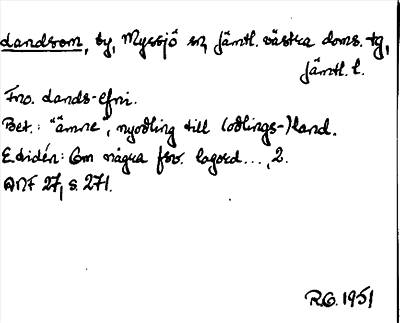 dandsom, by, Myssjö sn, Jämtl. västra doms. tg,
Jämtl. l.
Fno. lands-efni.
Bet.: "ämne", nyodling till (odlings-)land.
E. Lidén: Om några fsv. lagord..., 2.
ANF 27, s. 271.
R.G. 1951